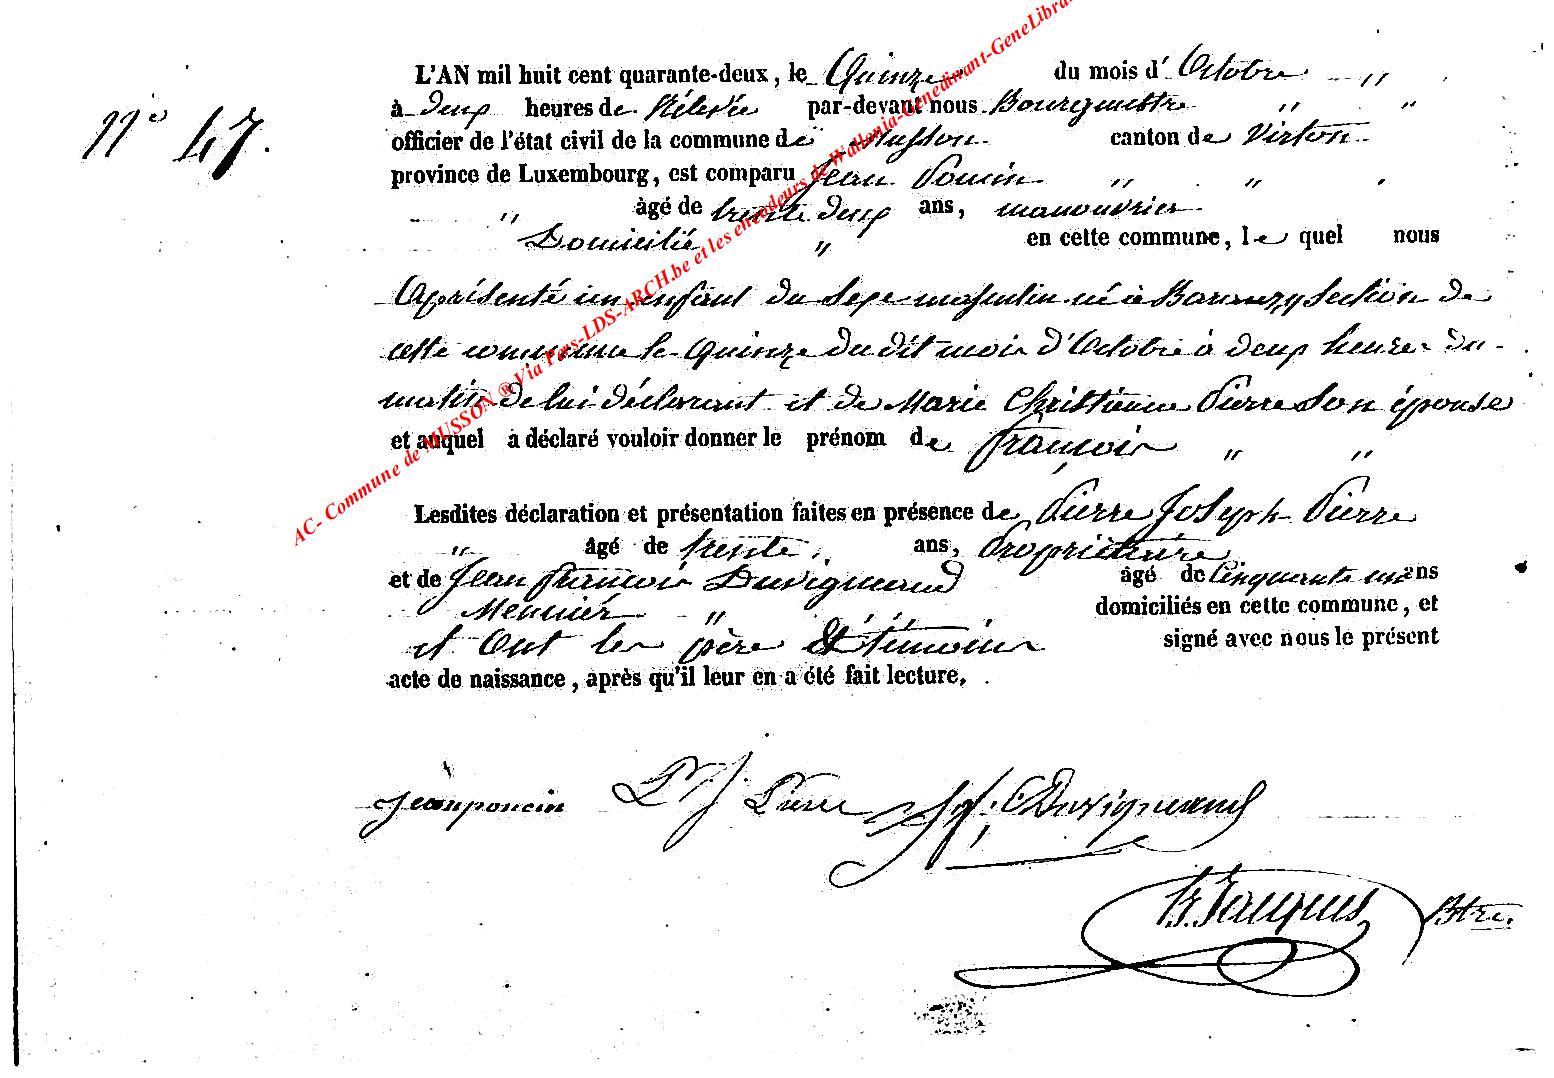 L'AN mil huit cent quarante-deux, le Quinze du mois d' Octobre "
N° 47.
à deux heures de Rélevée par-devant nous Bourgmestre " "
officier de l'état civil de la commune de Musson canton de Virton
province de Luxembourg, est comparu Jean Poncin " "
" âgé de trente deux ans, manouvrier
Domicilié " en cette commune, le quel nous
a présenté un enfant du sexe masculin né à Baranzy section de
cette commune le Quinze du dit mois d'Octobre à deux heures du
matin de lui déclarant et de Marie Christienne Pierre son épouse
et auquel a déclaré vouloir donner le prénom de françois " "
Lesdites déclaration et présentation faites en présence de Pierre Joseph Pierre
" âgé de trente ans, Propriétaire
et de Jean françois Duvigneaud âgé de Cinquante ans
Meunier " domiciliés en cette commune, et
et Ont les père Et témoins signé avec nous le présent
acte de naissance, après qu'il leur en a été fait lecture.
jean poncin P J Pierre J f. Duvigneaud
Jacques Btre.
AC- Commune de MUSSON ® Via Pers-LDS-ARCH.be et les encodeurs de Wallonia-Genedinant-GeneLibra